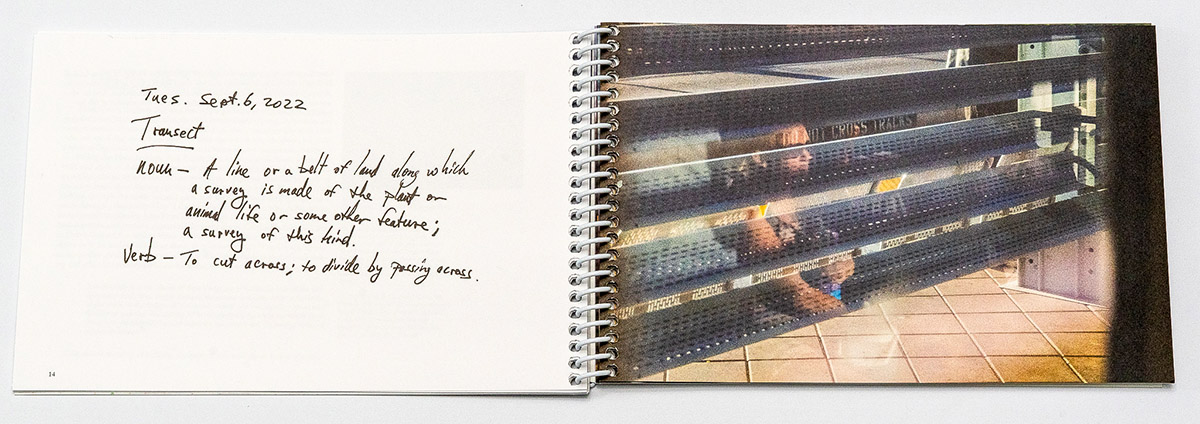 Tues. Sept. 6, 2022
Transect
noun – A line or a belt of land along which
a survey is made of the plant or
animal life or some other feature;
a survey of this kind.
Verb – To cut across; to divide by passing across.
14
DO NOT CROSS TRACKS